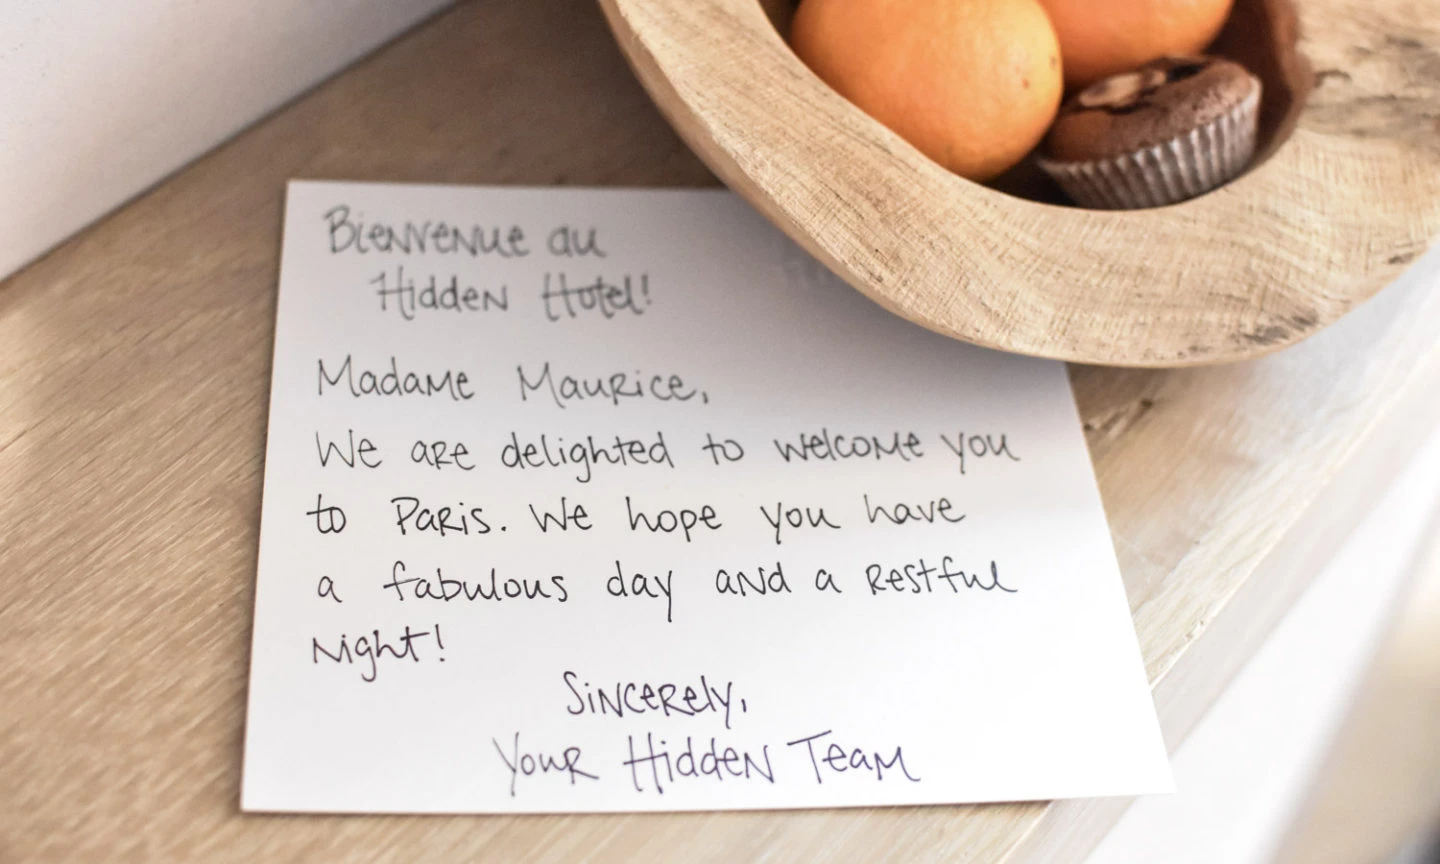 Bienvenue au
Hidden Hotel!
Madame Maurice,
We are delighted to welcome you
to Paris. We hope you have
a fabulous day and a restful
night!
Sincerely,
Your Hidden Team